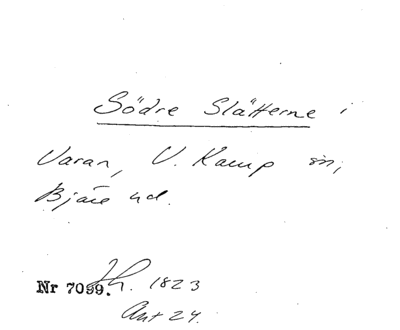 Södre Slätterne i
Varan, V. Karup sn,
Bjäre hd.
Nr 7099. Jh. 1823
Akt 24.